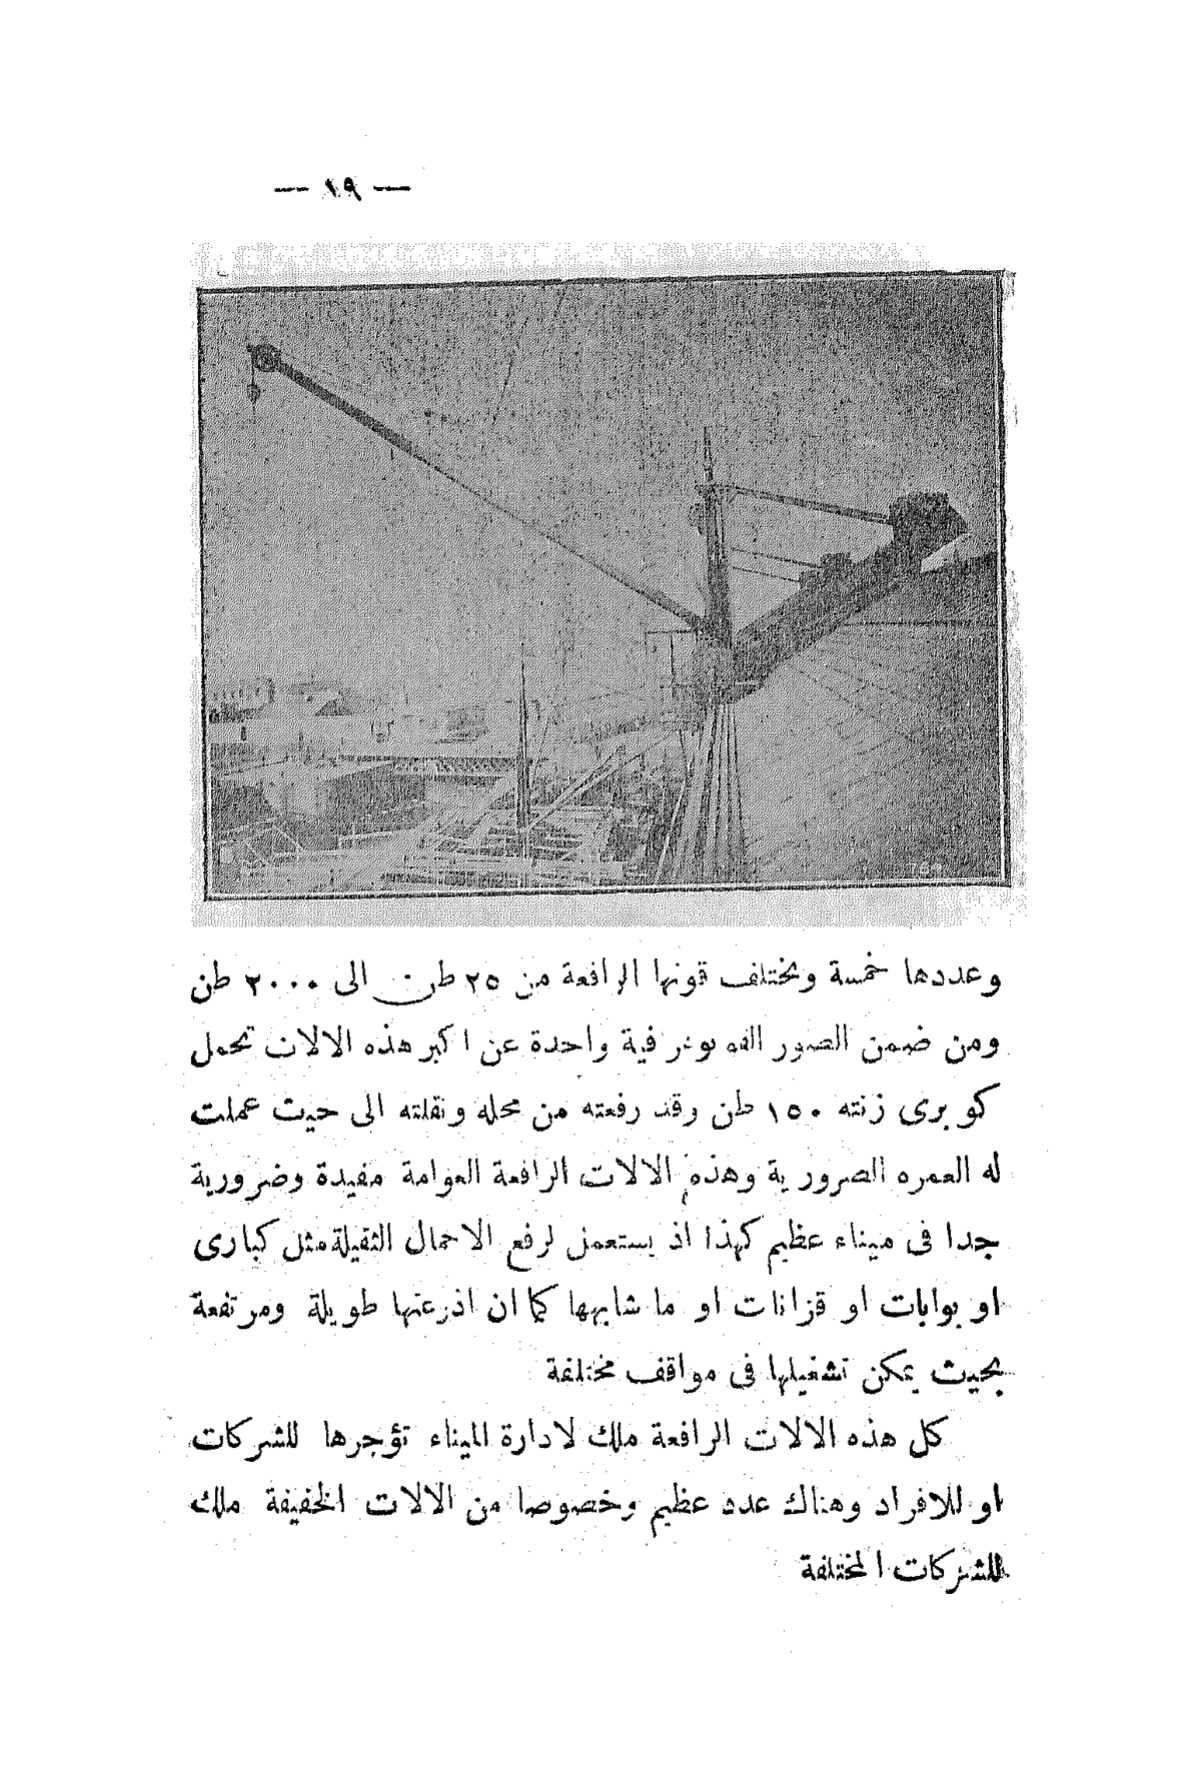 — ١٩ —
وعددها خمسة وتختلف قوتها الرافعة من ٢٥ طن الى ٢٠٠٠ طن
ومن ضمن الصور الفوتوغرفية واحدة عن اكبر هذه الالات تحمل
كوبرى زنته ١٥٠ طن وقد رفعته من محله ونقلته الى حيث عملت
له العمره الضرورية وهذه الالات الرافعة العوامة مفيدة وضرورية
جدا فى ميناء عظيم كهذا اذ يستعمل لرفع الاحمال الثقيلة مثل كبارى
او بوابات او قزانات او ما شابهها كما ان اذرعتها طويلة ومرتفعة
بحيث يمكن تشغيلها فى مواقف مختلفة
كل هذه الالات الرافعة ملك لادارة الميناء تؤجرها للشركات
او للافراد وهناك عدد عظيم وخصوصا من الالات الخفيفة ملك
للشركات المختلفة